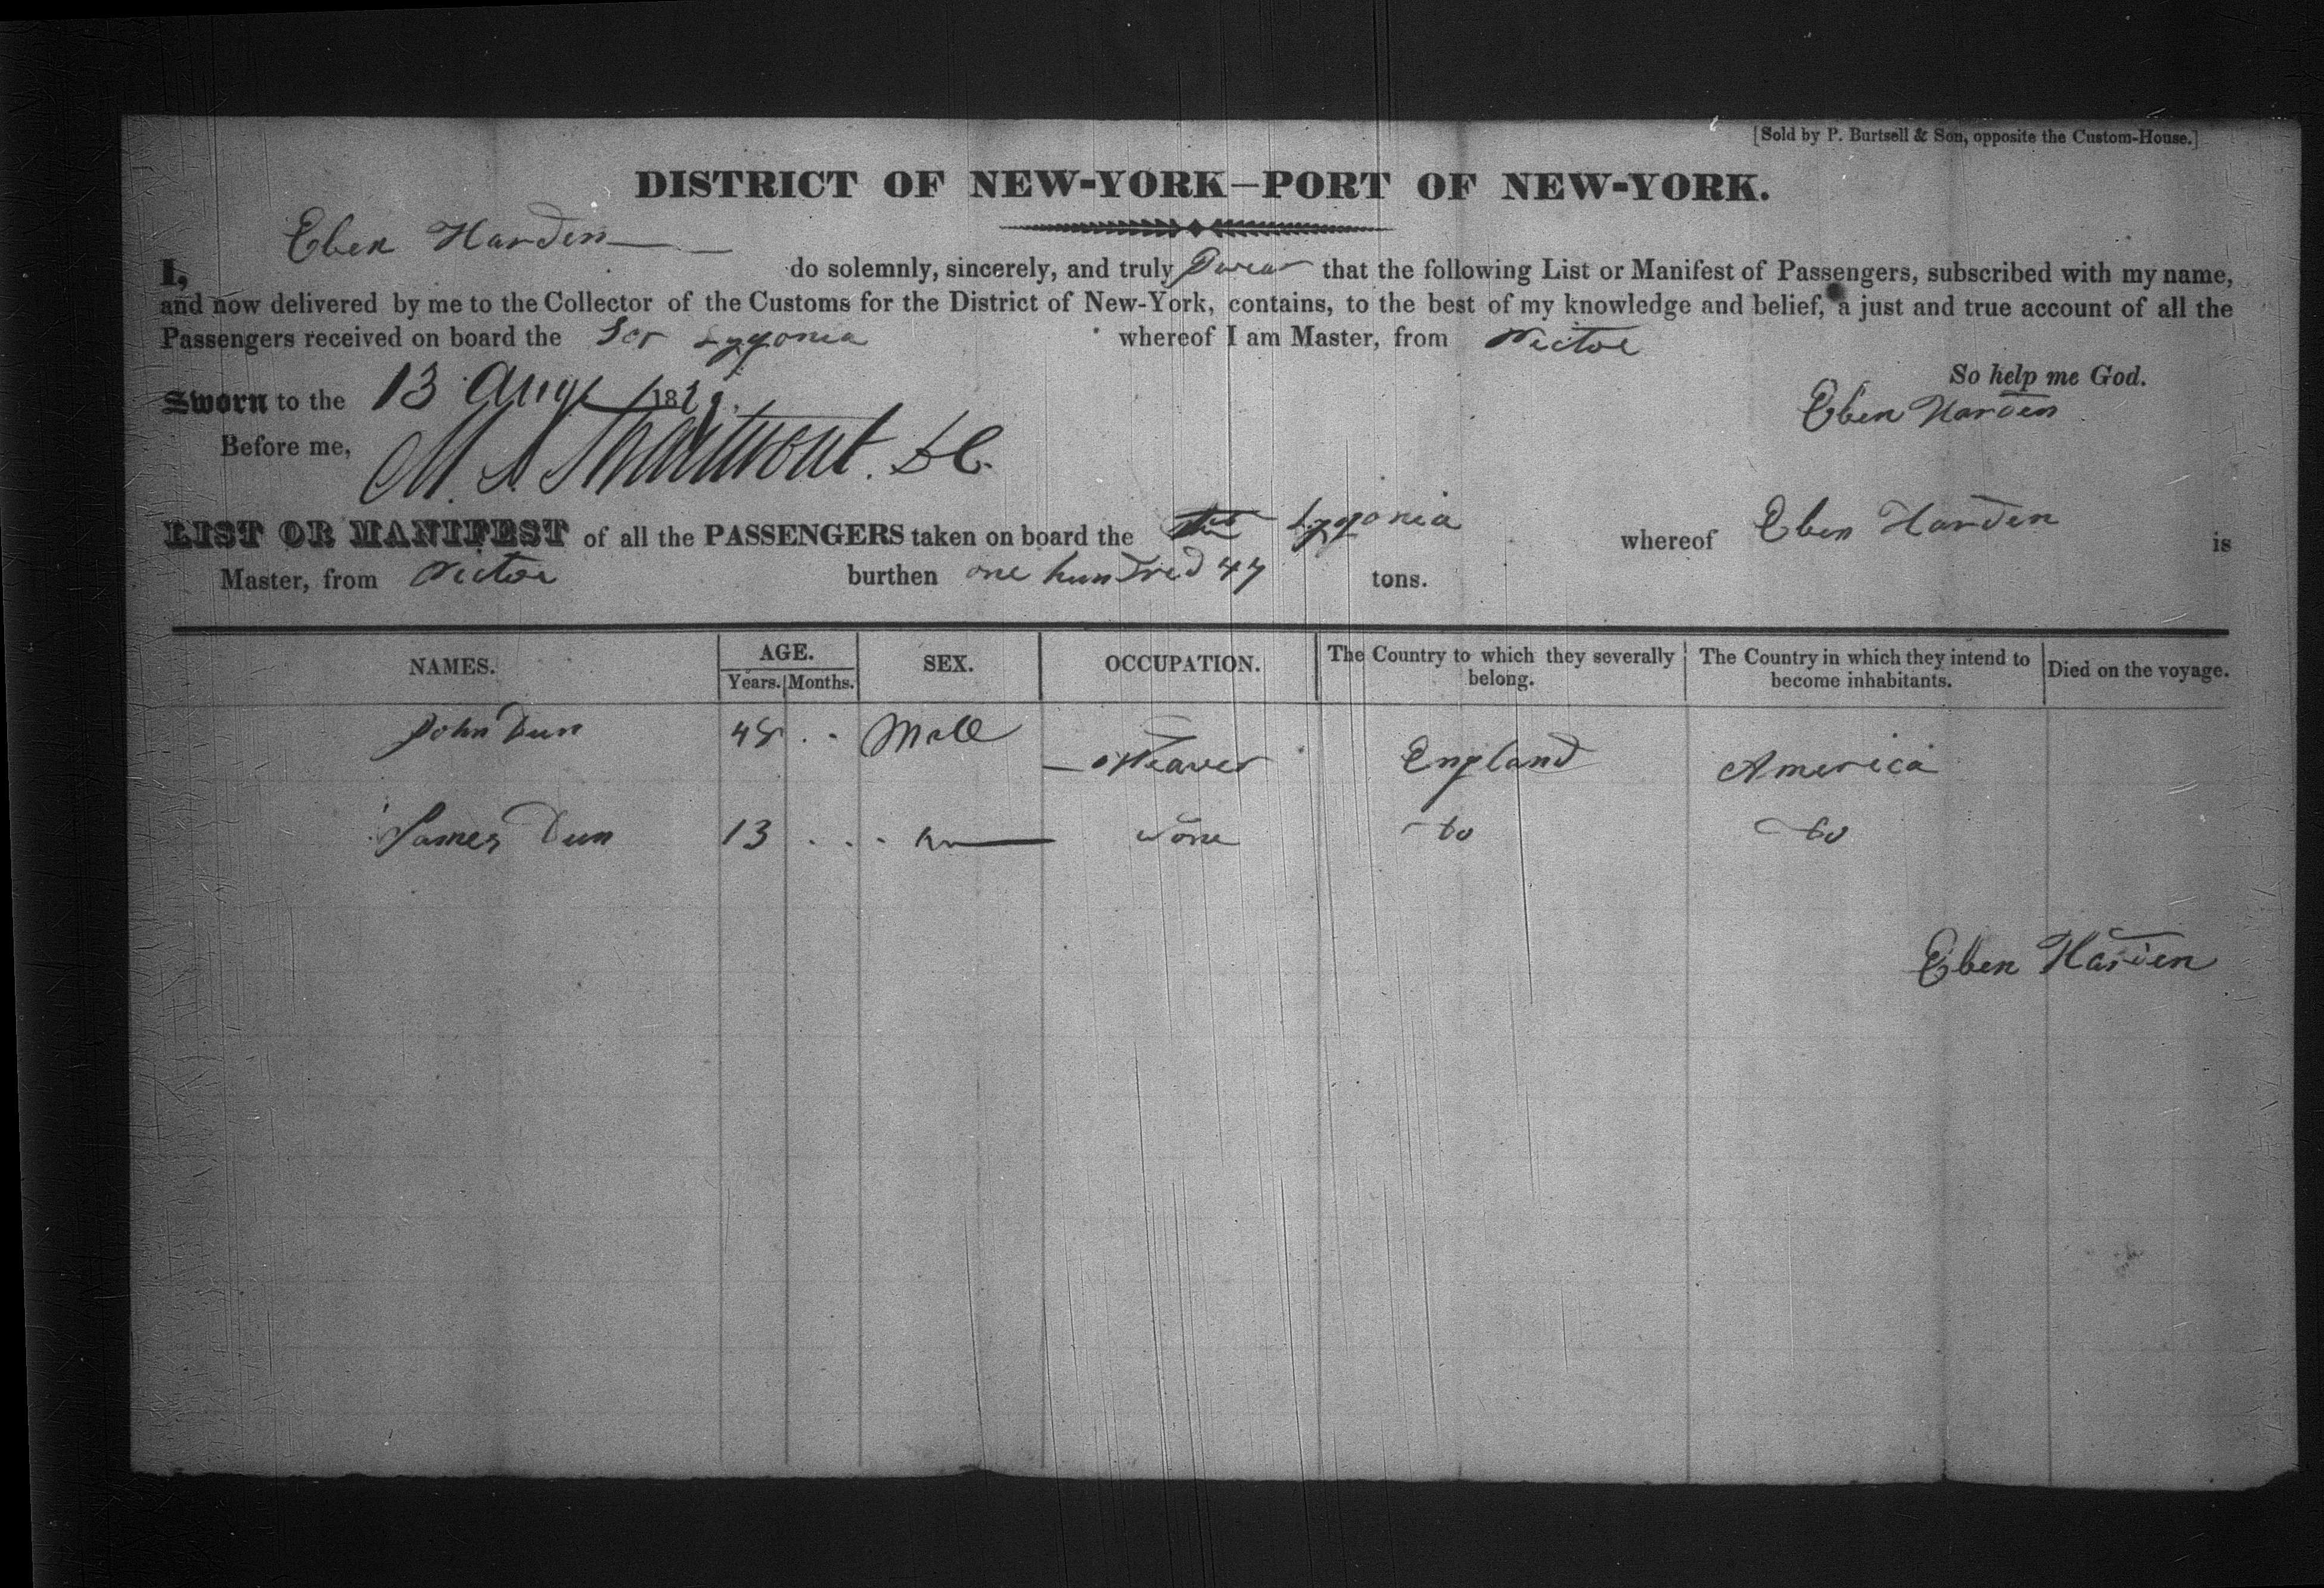 [Sold by P. Burtsell & Son, opposite the Custom-House.]
DISTRICT OF NEW-YORK—PORT OF NEW-YORK.
Eben Harden
I, do solemnly, sincerely, and truly Swear that the following List or Manifest of Passengers, subscribed with my name,
and now delivered by me to the Collector of the Customs for the District of New-York, contains, to the best of my knowledge and belief, a just and true account of all the
Passengers received on board the Scr Lygonia whereof I am Master, from Pictoe
So help me God.
Sworn to the 13 Augt 1829.
Eben Harden
Before me,
LIST OR MANIFEST of all the PASSENGERS taken on board the Lygonia whereof Eben Harden is
Master, from Pictoe burthen one hundred 47 tons.
NAMES. AGE. SEX. OCCUPATION. The Country to which they severally belong. The Country in which they intend to become inhabitants. Died on the voyage.
Years. Months.
John Dun 48 . . Male Weaver England America
James Dun 13 . . . None Do Do
Eben Harden